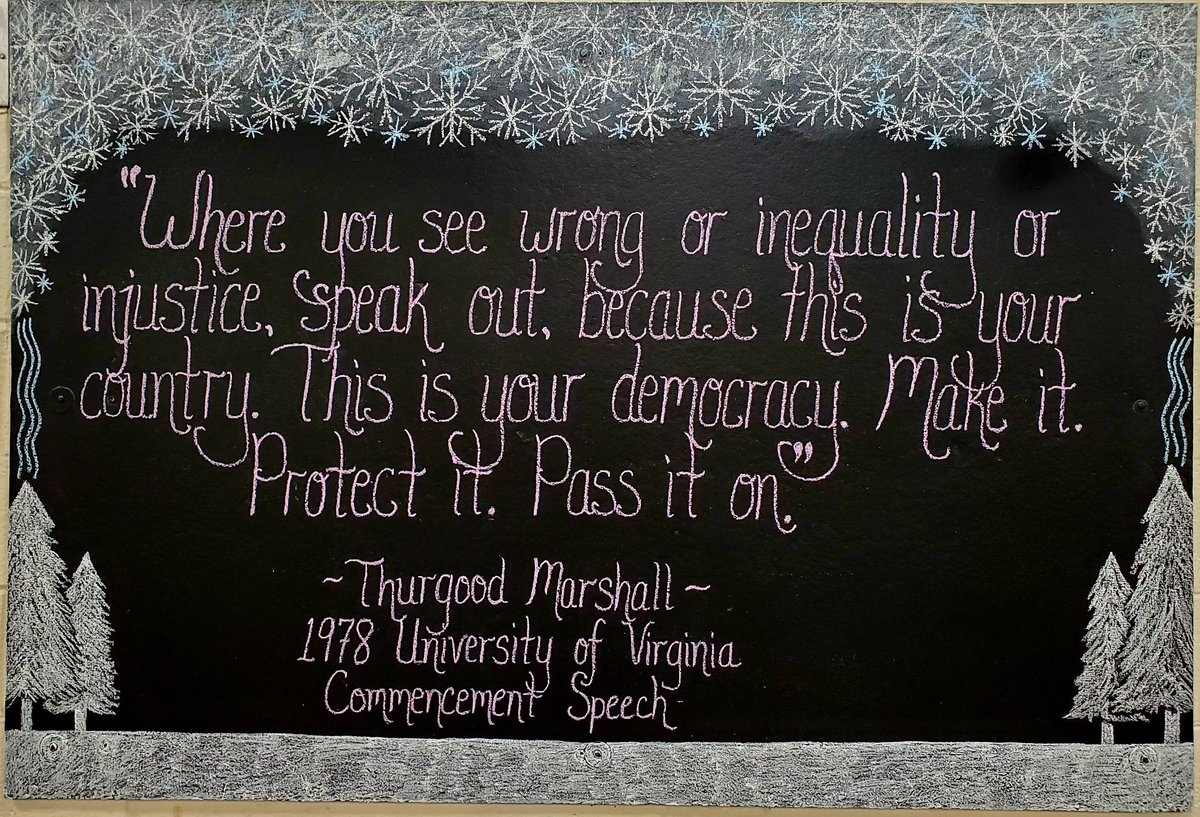 "Where you see wrong or inequality or
injustice, speak out, because this is your
country. This is your democracy. Make it.
Protect it. Pass it on."
~Thurgood Marshall~
1978 University of Virginia
Commencement Speech